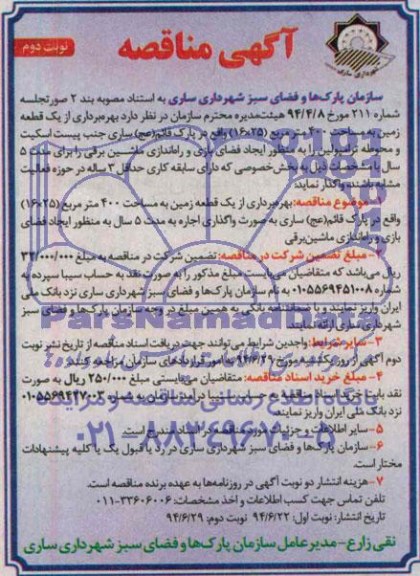 نوبت دوم
آگهی مناقصه
شهرداری ساری
سازمان پارک‌ها و فضای سبز شهرداری ساری به استناد مصوبه بند ۲ صورتجلسه
شماره ۲۱۱ مورخ ۹۴/۴/۸ هیئت‌مدیره محترم سازمان در نظر دارد بهره‌برداری از یک قطعه
زمین به مساحت ۴۰۰ متر مربع (۲۵×۱۶) واقع در پارک قائم(عج) ساری جنب پیست اسکیت
و محوطه ترامپولین را به منظور ایجاد فضای بازی و راندازی ماشین برقی را برای مدت ۵
سال با مشخصات ذیل به بخش‌خصوصی که دارای سابقه کاری حداقل ۳ ساله در حوزه فعالیت
مشابه باشند واگذار نمایند
۱- موضوع مناقصه: بهره‌برداری از یک قطعه زمین به مساحت ۴۰۰ متر مربع (۲۵×۱۶)
واقع در پارک قائم(عج) ساری به صورت واگذاری اجاره به مدت ۵ سال به منظور ایجاد فضای
بازی و راندازی ماشین‌برقی
۲- مبلغ تضمین شرکت در مناقصه: تضمین شرکت در مناقصه به مبلغ ۳۲/۰۰۰/۰۰۰
ریال می‌باشد که متقاضیان می‌بایست مبلغ مذکور را به صورت نقد به حساب سیبا سپرده به
شماره ۰۱۰۵۵۶۹۴۵۱۰۰۸ به نام سازمان پارک‌ها و فضای سبز شهرداری ساری نزد بانک ملی
ایران واریز نمایند و یا ضمانتنامه بانکی به همین مبلغ در وجه سازمان پارک‌ها و فضای سبز
شهرداری ساری ارائه نمایند
۳- سایر شرایط: واجدین شرایط می‌توانند جهت دریافت اسناد مناقصه از تاریخ نشر نوبت
دوم آگهی از روز یکشنبه مورخ ۹۴/۶/۲۹ به امور قراردادهای سازمان مراجعه کنند
۴- مبلغ خرید اسناد مناقصه: متقاضیان می‌بایستی مبلغ ۲۵۰/۰۰۰ ریال به صورت
نقد بابت خرید اسناد مناقصه به حساب سیبا درآمد سازمان به شماره ۰۱۰۵۵۶۹۴۴۷۰۰۳
نزد بانک ملی ایران واریز نمایند
۵- سایر اطلاعات و جزئیات مورد مناقصه در اسناد مندرج است.
۶- سازمان پارک‌ها و فضای سبز شهرداری ساری در رد یا قبول یک یا کلیه پیشنهادات
مختار است.
۷- هزینه انتشار دو نوبت آگهی در روزنامه‌ها به عهده برنده مناقصه است.
تلفن تماس جهت کسب اطلاعات و اخذ مشخصات: ۳۳۶۰۶۰۰۶-۰۱۱
تاریخ انتشار: نوبت اول: ۹۴/۶/۲۲ نوبت دوم: ۹۴/۶/۲۹
نقی زارع - مدیرعامل سازمان پارک‌ها و فضای سبز شهرداری ساری
ParsNamadData
پایگاه اطلاع رسانی مناقصه و مزایده
۰۲۱-۸۸۳۴۹۶۷۰-۵